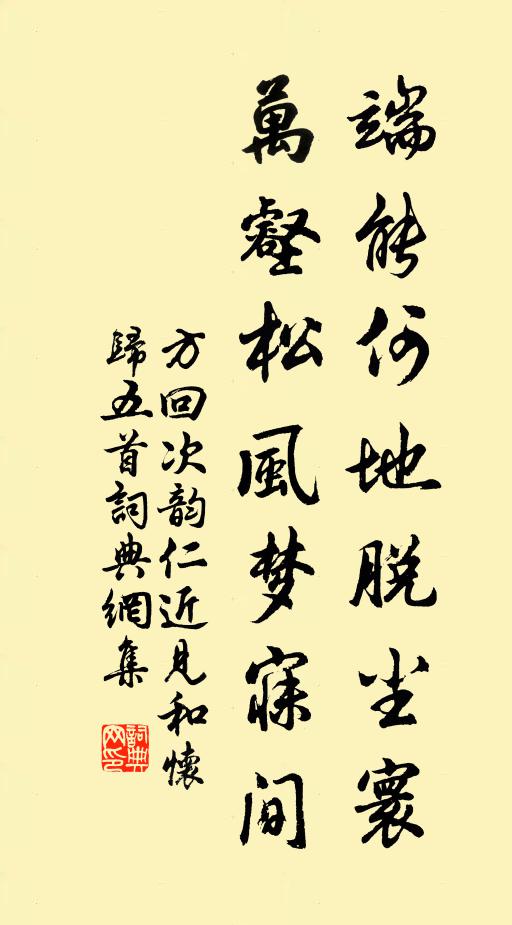 端能何地脱尘寰
萬壑松風梦寐间
方回次韵仁近見和懷
歸五首詞典網集
詞典
网印